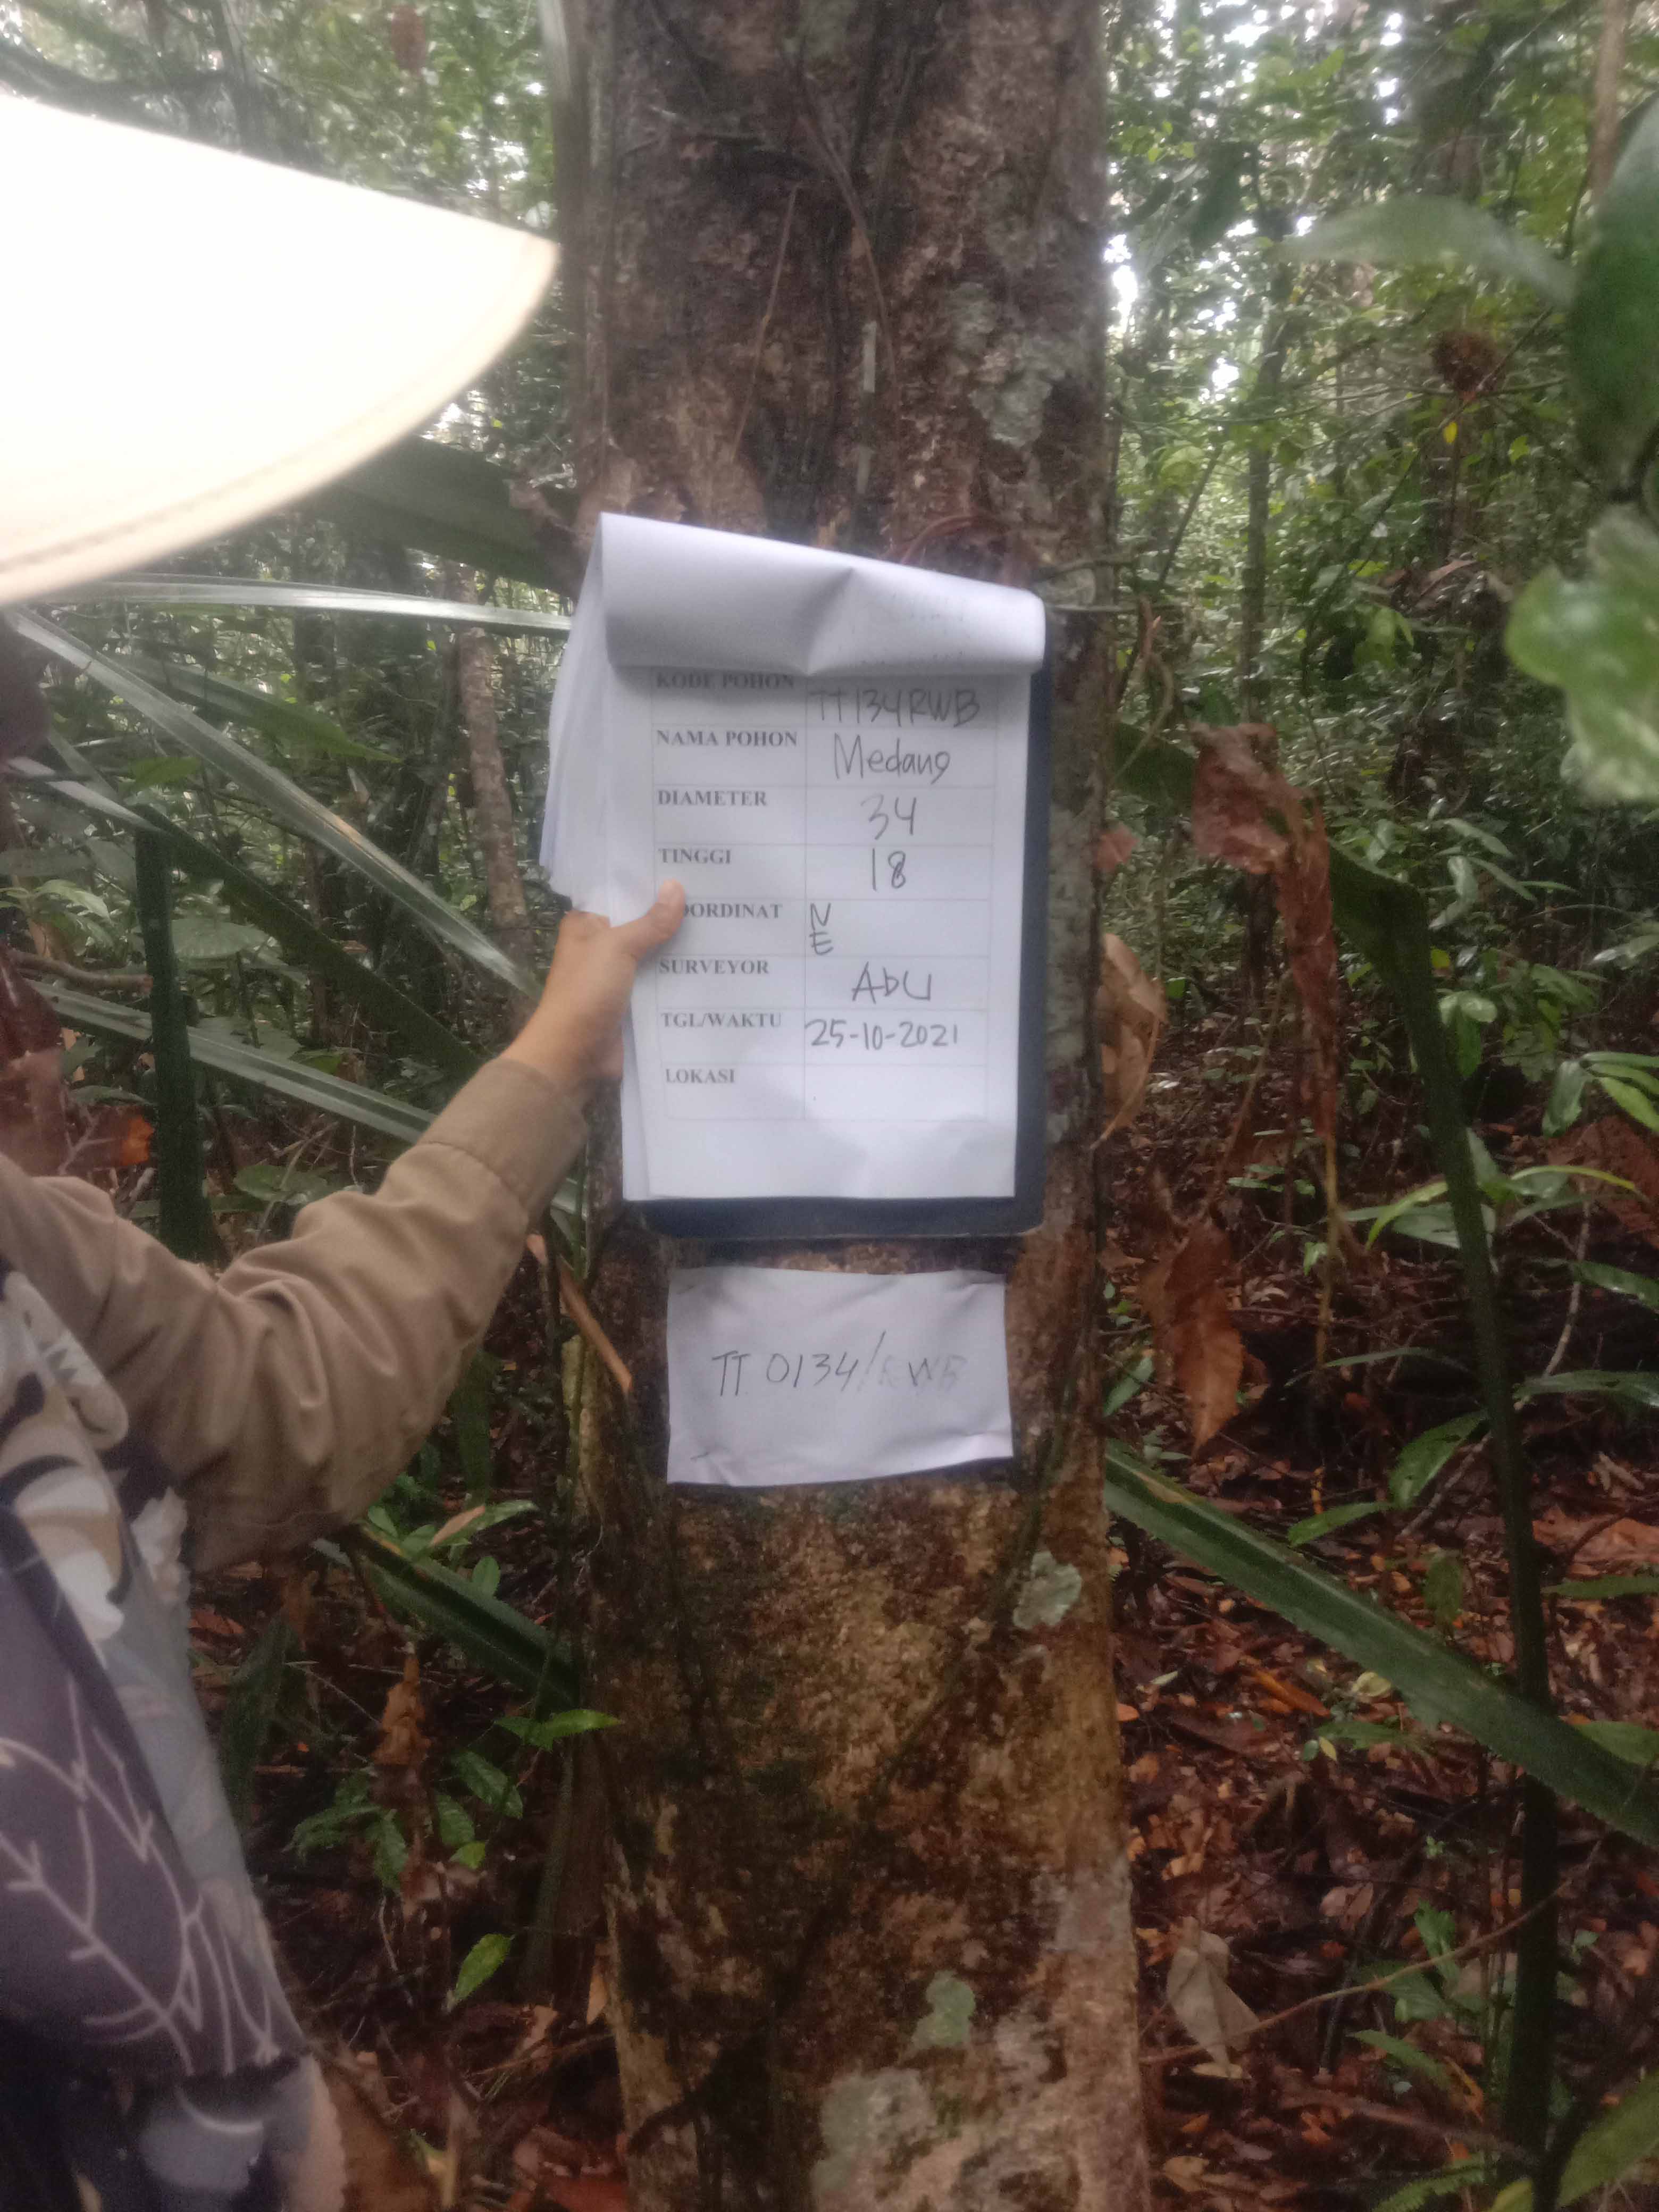 KODE POHON TT134RWB
NAMA POHON Medang
DIAMETER 34
TINGGI 18
OORDINAT N
E
SURVEYOR AbU
TGL/WAKTU 25-10-2021
LOKASI
TT 0134/RWB